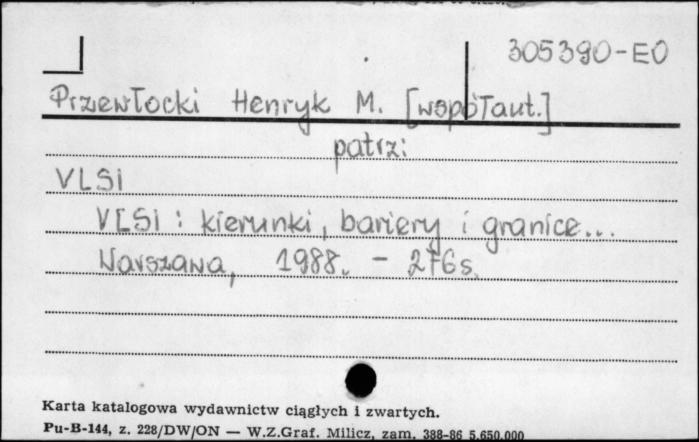 305390-EO
Przewłocki Henryk M. [współaut.]
patrz:
VLSI
VLSI : kierunki, bariery i granice...
Warszawa, 1988. - 276 s.
Karta katalogowa wydawnictw ciągłych i zwartych.
Pu-B-144, z. 228/DW/ON — W.Z.Graf. Milicz, zam. 388-86 5.650.000